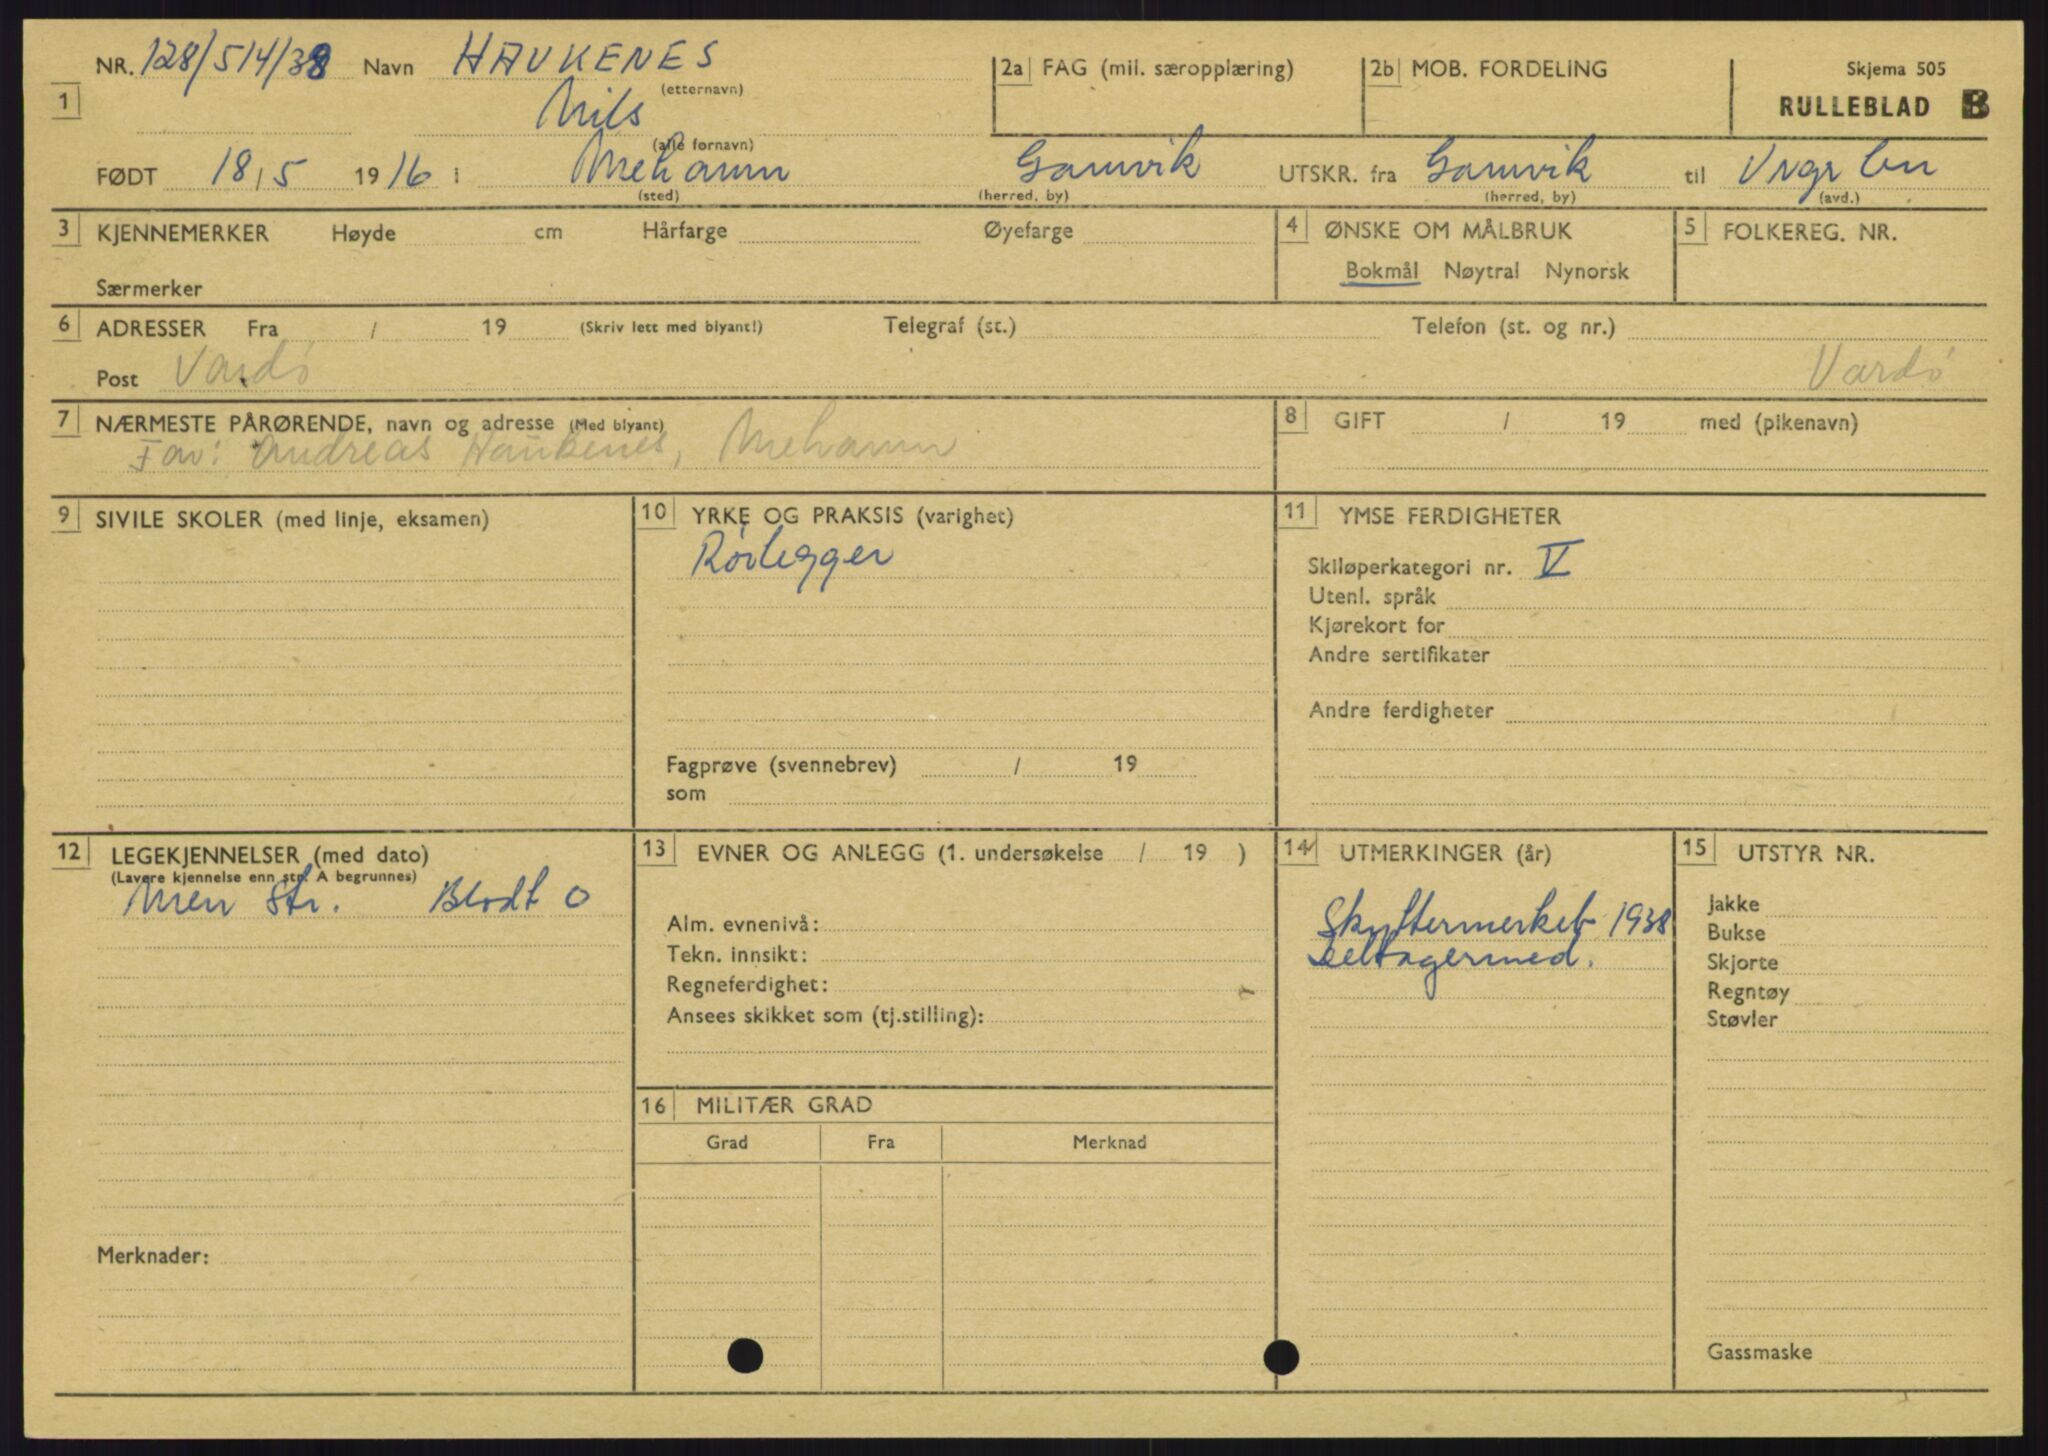 NR. 128/514/38 Navn HAUKENES
(etternavn)
1
Nils
(alle fornavn)
2a FAG (mil. særopplæring)
2b MOB. FORDELING
Skjema 505
RULLEBLAD B
FØDT 18/5 1916 i Mehamn Gamvik UTSKR. fra Gamvik til
(sted) (herred, by) (herred, by) (avd.)
3 KJENNEMERKER Høyde cm Hårfarge Øyefarge
Særmerker
4 ØNSKE OM MÅLBRUK
Bokmål Nøytral Nynorsk
5 FOLKEREG. NR.
6 ADRESSER Fra / 19 (Skriv lett med blyant!) Telegraf (st.) Telefon (st. og nr.)
Post Vardø Vardø
7 NÆRMESTE PÅRØRENDE, navn og adresse (Med blyant)
Far: Andreas Haukenes, Mehamn
8 GIFT / 19 med (pikenavn)
9 SIVILE SKOLER (med linje, eksamen)
10 YRKE OG PRAKSIS (varighet)
Rørlegger
Fagprøve (svennebrev) / 19
som
11 YMSE FERDIGHETER
Skiløperkategori nr. V
Utenl. språk
Kjørekort for
Andre sertifikater
Andre ferdigheter
12 LEGEKJENNELSER (med dato)
(Lavere kjennelse enn str. A begrunnes)
Men Str. Blodt O
Merknader:
13 EVNER OG ANLEGG (1. undersøkelse / 19 )
Alm. evnenivå:
Tekn. innsikt:
Regneferdighet:
Ansees skikket som (tj.stilling):
16 MILITÆR GRAD
Grad Fra Merknad
14 UTMERKINGER (år)
Skyttermerket 1938
Deltagermed.
15 UTSTYR NR.
Jakke
Bukse
Skjorte
Regntøy
Støvler
Gassmaske